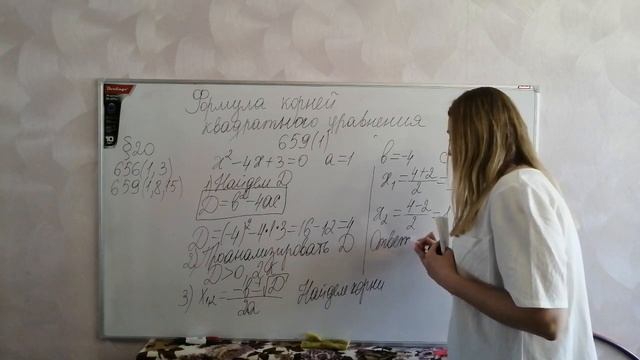 Формула корней
квадратного уравнения
659(1)
§20
656(1,3)
659(1,8,15)
x² - 4x + 3 = 0 a = 1 b = -4
1) Найдем D
D = b² - 4ac
D = (-4)² - 4·1·3 = 16 - 12 = 4
2) Проанализировать D
D > 0, 2к
3) x₁,₂ = (-b ± √D) / 2a Найдем корни
x₁ = (4+2)/2 =
x₂ = (4-2)/2 = 1
Ответ